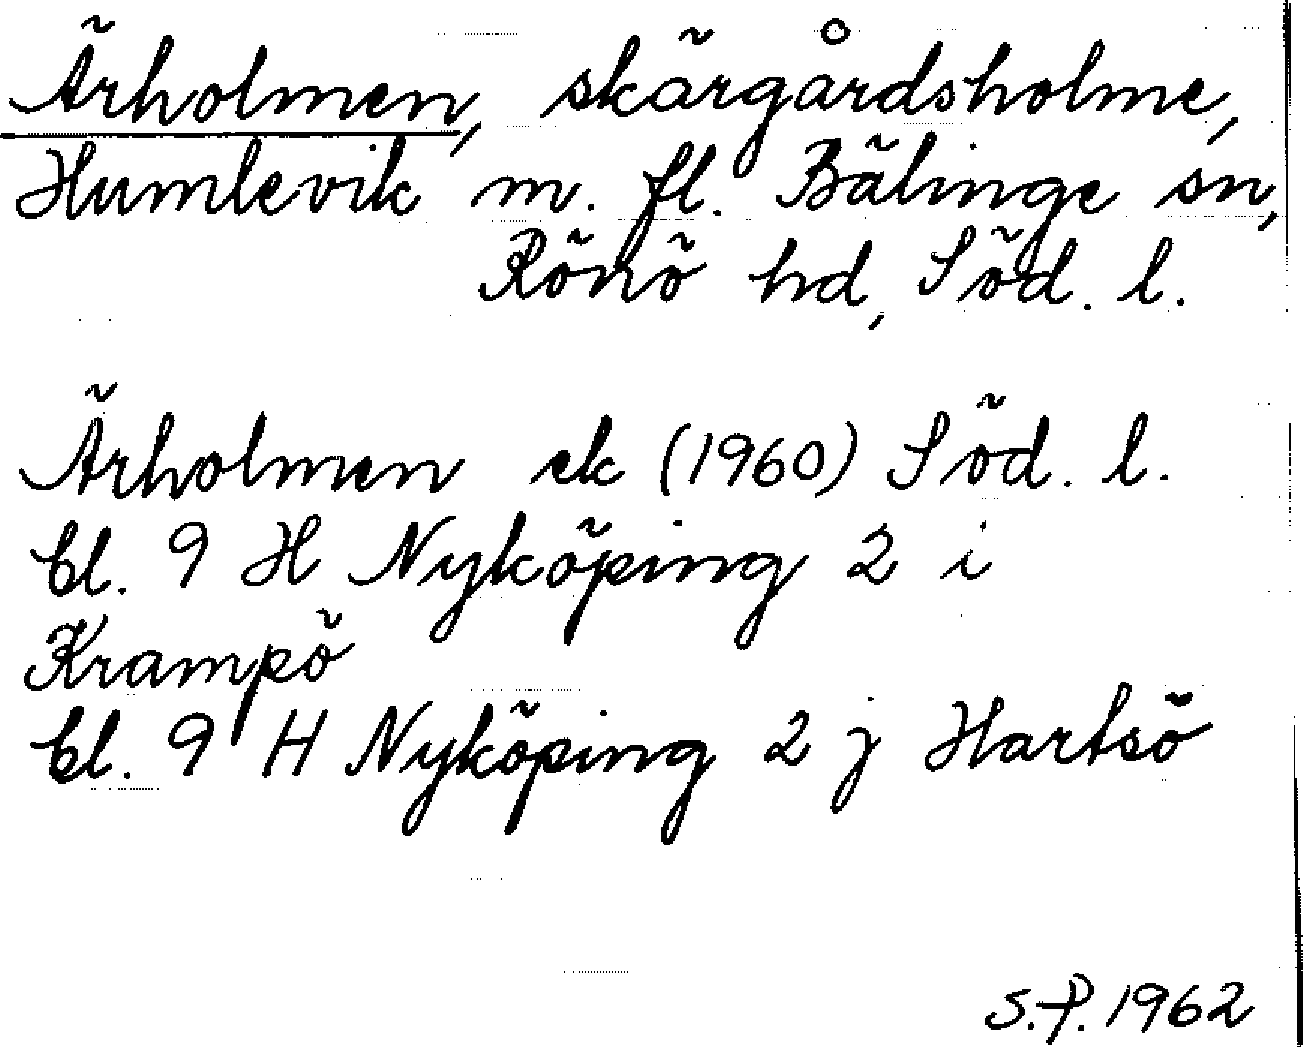 Ärholmen, skärgårdsholme,
Humlevik m. fl. Bälinge sn,
Rönö hd, Söd. l.
Ärholmen ek (1960) Söd. l.
bl. 9 H Nyköping 2 i
Krampö
bl. 9 H Nyköping 2 j Hartsö
S.P. 1962